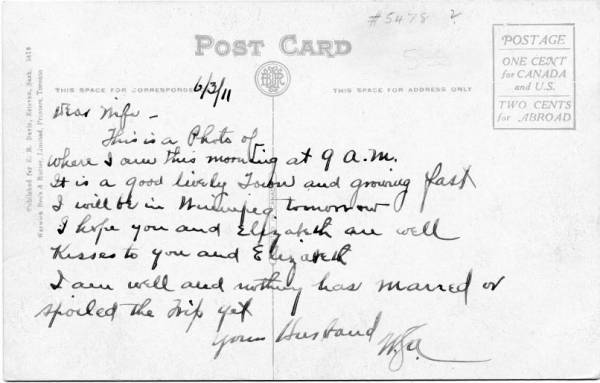 #5478 ?
POST CARD
THIS SPACE FOR CORRESPONDE
THIS SPACE FOR ADDRESS ONLY
POSTAGE
ONE CENT
for CANADA
and U.S.
TWO CENTS
for ABROAD
Warwick Bro's & Rutter, Limited, Printers, Toronto
6/3/11
Dear Wife -
This is a Photo of
where I am this morning at 9 a.m.
It is a good lively Town and growing fast
I will be in Winnipeg tomorrow
I hope you and Elizabeth are well
Kisses to you and Elizabeth
I am well and nothing has marred or
spoiled the Trip yet
Your Husband